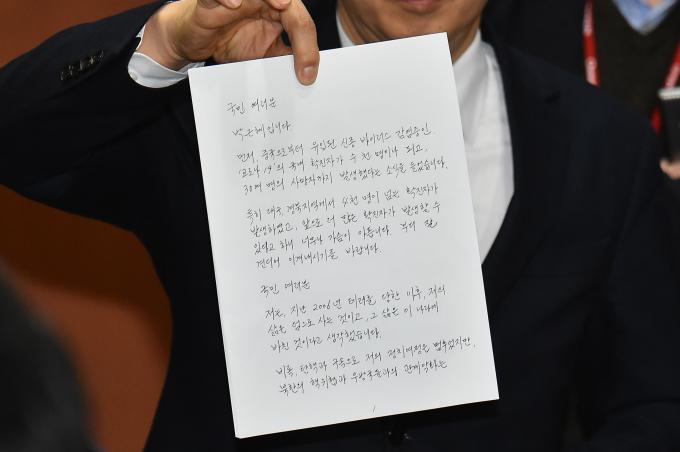 국민 여러분
박근혜입니다
먼저, 중국으로부터 유입된 신종 바이러스 감염증인
'코로나 19'의 국내 확진자가 수 천 명이나 되고,
30여 명의 사망자까지 발생했다는 소식을 들었습니다.
특히 대구, 경북지역에서 4천 명이 넘는 확진자가
발생하였고, 앞으로 더 많은 확진자가 발생할 수
있다고 하니 너무나 가슴이 아픕니다. 부디 잘
견디어 이겨내시기를 바랍니다.
국민 여러분
저는, 지난 2006년 테러를 당한 이후, 저의
삶은 덤으로 사는 것이고, 그 삶은 이 나라에
바친 것이라고 생각했습니다.
비록, 탄핵과 구속으로 저의 정치여정은 멈추었지만,
북한의 핵위협과 우방국들과의 관계악화는
1